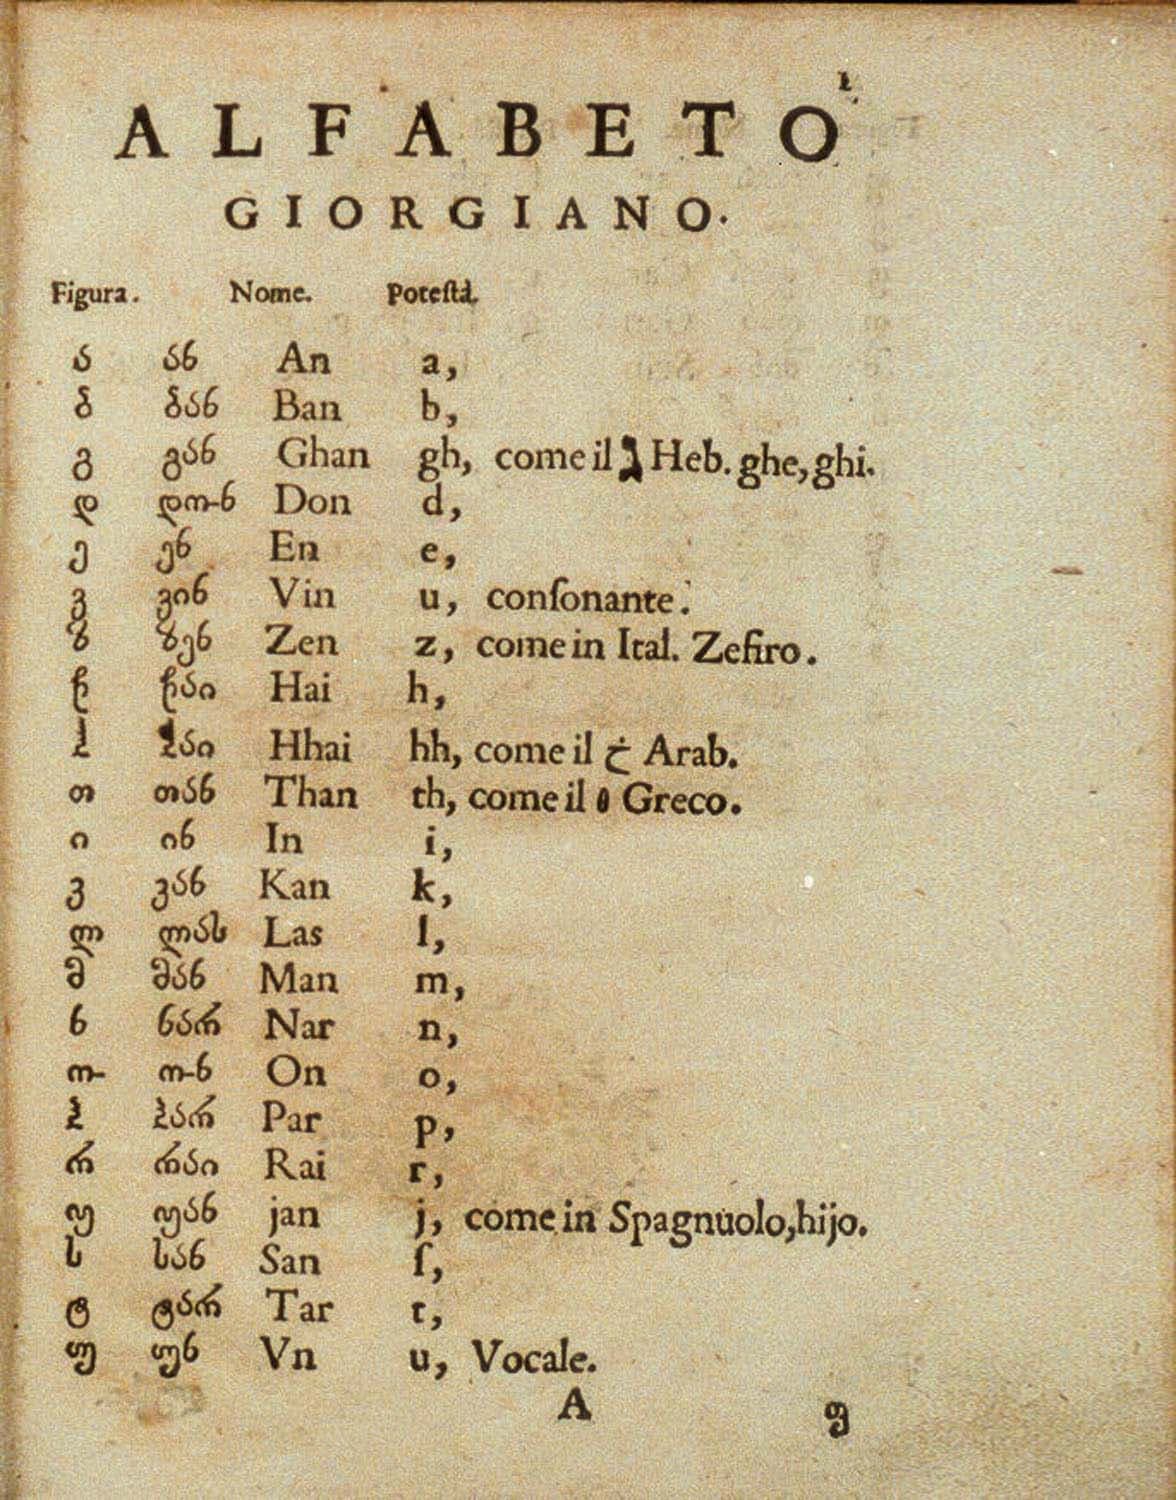 1.
ALFABETO
GIORGIANO.
Figura. Nome. Poteſtà.
ა ან An a,
ბ ბან Ban b,
გ გან Ghan gh, come il ג Heb. ghe, ghi.
დ დონ Don d,
ე ენ En e,
ვ ვინ Vin u, conſonante.
ზ ზენ Zen z, come in Ital. Zefiro.
ჱ ჱაი Hai h,
ჰ ჰაი Hhai hh, come il خ Arab.
თ თან Than th, come il θ Greco.
ი ინ In i,
კ კან Kan k,
ლ ლას Las l,
მ მან Man m,
ნ ნარ Nar n,
ო ონ On o,
პ პარ Par p,
რ რაი Rai r,
ჟ ჟან jan j, come in Spagnuolo, hijo.
ს სან San ſ,
ტ ტარ Tar t,
უ უნ Vn u, Vocale.
A ფ